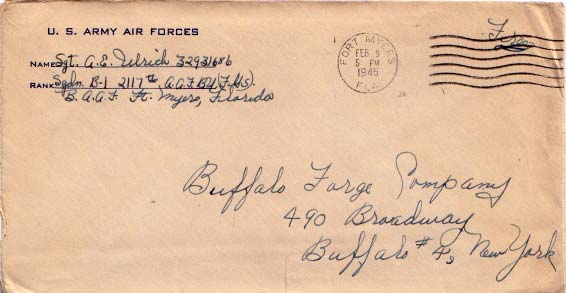 U. S. ARMY AIR FORCES
Free
NAME Sgt. A. E. Ulrich 32931686
RANK Sqdn. B-1 2117th A.A.F. B.U. (Flx/G).
B.A.A.F. Ft. Myers, Florida
FORT MYERS
FEB 9
5 PM
1945
FLA.
Buffalo Forge Company
490 Broadway
Buffalo #4, New York